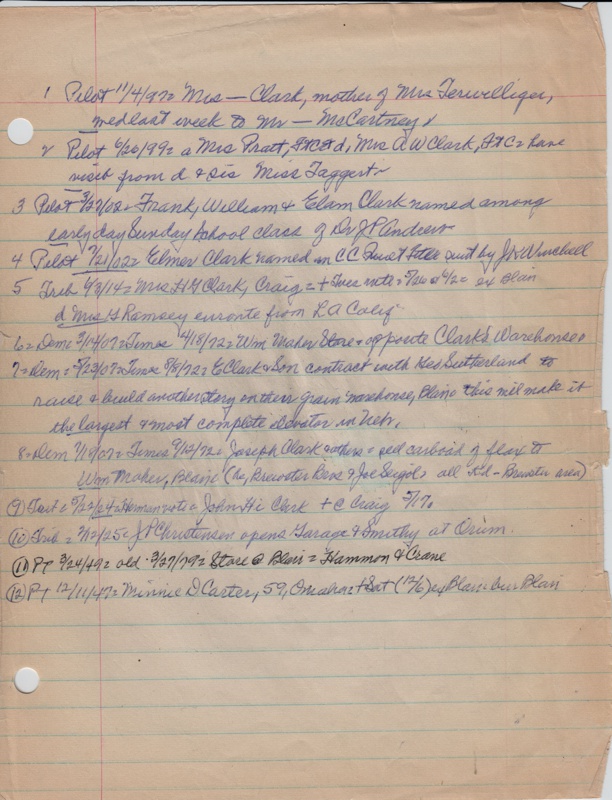 1 Pilot 11/4/97= Mrs — Clark, mother of Mrs Terwilliger,
wed last week to Mr — McCartney
2 Pilot 6/20/99= a Mrs Pratt, Ft C & d, Mrs A W Clark, Ft C= have
visit from d & sis Miss Taggert
3 Pilot 3/27/02= Frank, William & Elam Clark named among
early day Sunday School class of Dr J P Andrews
4 Pilot 7/21/02= Elmer Clark named in C C Title suit by J W Winchell
5 Trib 4/3/14= Mrs H G Clark, Craig= + Tues nite= ex Blair
d Mrs G Ramsey enroute from LA Calif
6= Dem= 3/14/07= Times 4/18/72= Wm Maher Store= opposite Clark's Warehouse
7= Dem= 5/23/07= Times 8/8/72= E Clark & Son contract with Geo Sutherland to
raise & build another story on their grain warehouse, Blair= this will make it
the largest & most complete elevator in Neb.
8= Dem 7/18/07= Times 9/12/72= Joseph Clark & others= sed carload of flax to
Wm Maher, Blair= (he, Brewster Bros & Joe all Kd - Brewster area)
(9) Trib= 5/22/24= Herman note= John Hi Clark + @ Craig 5/17.
(10) Trib= 7/2/25= J P Christensen opens Garage & Smithy at Orum.
(11) PT 3/24/49= old 3/27/79= Store @ Blair= Hammon & Crane
(12) PT 12/11/47= Minnie D Carter, 59, Omaha= + Sat (12/6) ex Blair bur Blair